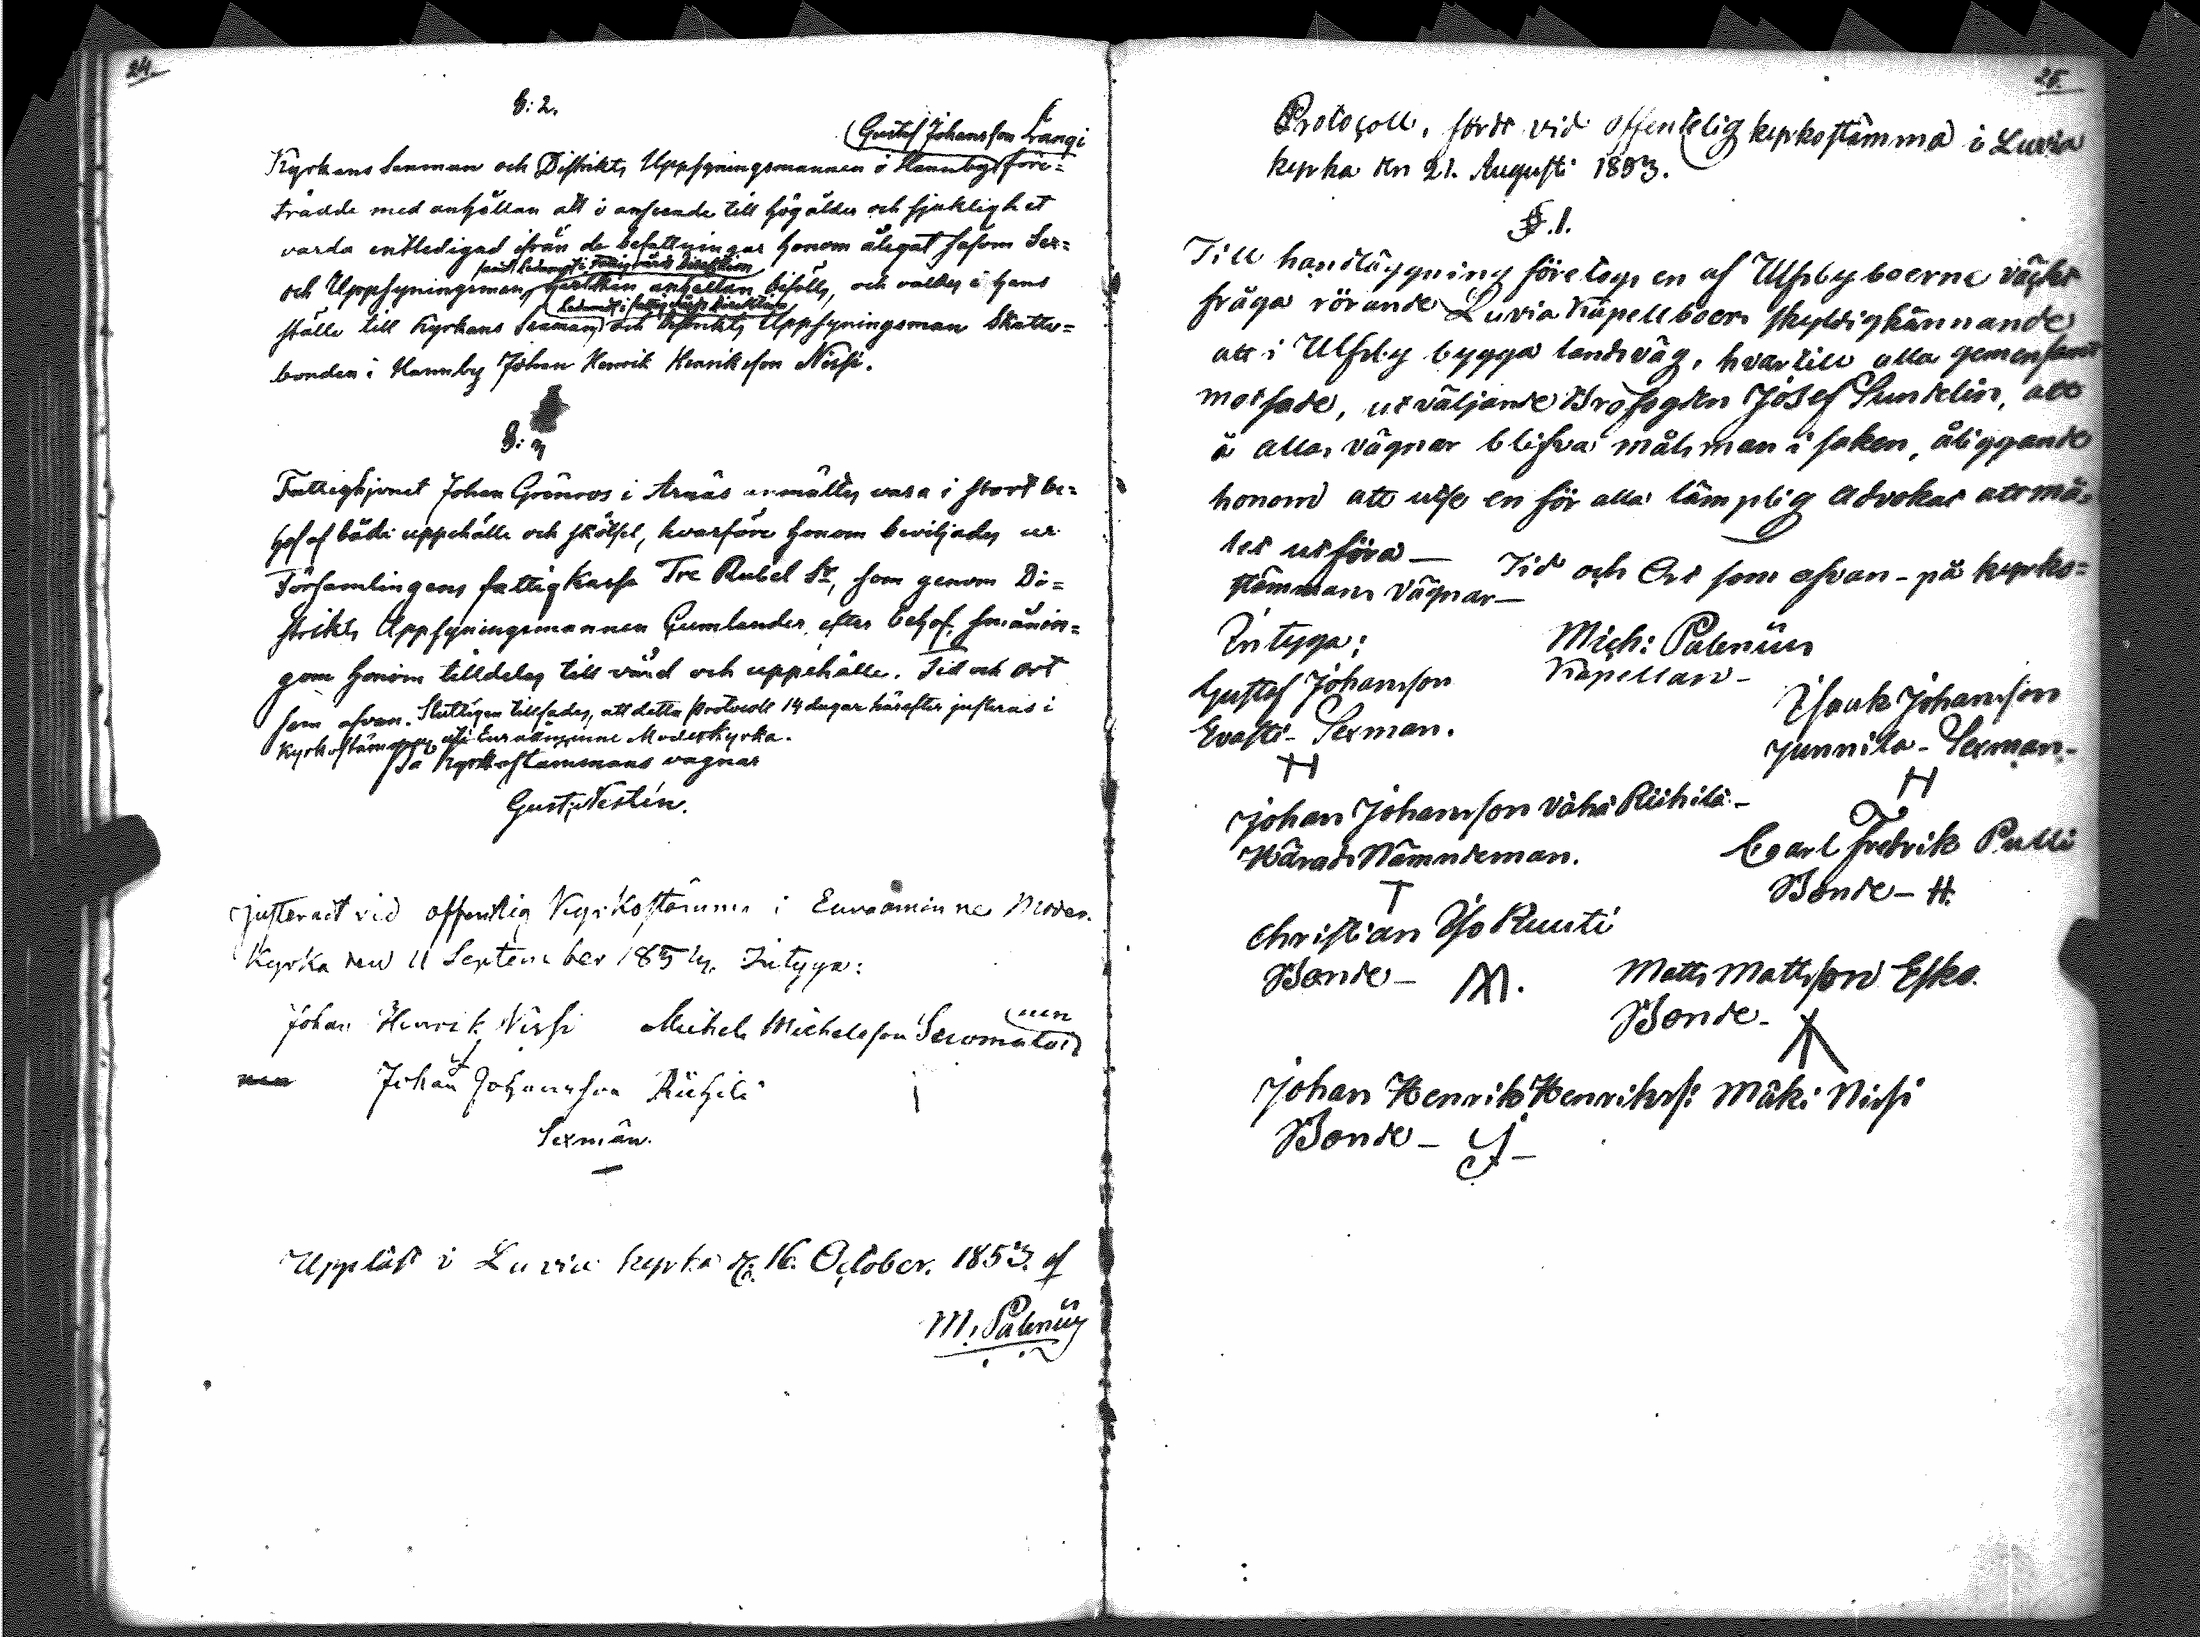 24.
§: 2.
(Gustaf Johansson Långi
Kyrkans Sexman och Distrikts Uppsyningsmannen i Hannby före=
trädde med anhållan att i anseende till hög ålder och sjuklighet
varda entledigad ifrån de befattningar honom ålegat såsom Sex=
samt Ledamot i Fattigvårds Direktion
och Uppsyningsman, hvilken anhållan bifölls, och valdes i hans
Ledamot i fattigvårds Direktion
ställe till Kyrkans Sexman, och Distrikts Uppsyningsman Skatte=
bonden i Hannby Johan Henrik Henriksson Nissi.
§: 3
Fattighjonet Johan Grönroos i Arnäs anmältes vara i stort be=
hof af både uppehälle och skötsel, hvarföre honom beviljades ur
Församlingens fattigkassa Tre Rubel Sr, som genom Di=
strikts Uppsyningsmannen Gumlander, efter behof, smånin=
gom honom tilldelas till vård och uppehälle. Tid och ort
som ofvan. Slutligen tillsades, att detta protocoll 14 dagar härefter justeras i
Kyrkostämma uti Euraåminne Moderkyrka.
På Kyrkostämmans vägnar
Gust: Nestin.
justeradt vid offentlig Kyrkostämma i Euraåminne Moder.
Kyrka den 11 September 1853. Intyga:
Johan Henrik Nissi Michels Michelsson
Johan Johansson Riihilä
Sexmän.
Uppläst i Luvia kyrka d. 16. October. 1853. af
M. Palenius
25.
Protocoll, fördt vid offentelig kyrkostämma i Luvia
kyrka den 21. Augusti 1853.
§.1.
Till handläggning företogs en af Ulfsbyboerne väckt
fråga rörande Luvia Kapellboers skyldigkännande
att i Ulfsby bygga landsväg, hvartill alla gemensamt
motsade, utväljande Brofogden Josef Sundelin, att
å allas vägnar blifva målsman i saken, åliggande
honom att utse en för alla lämplig Advokat att må-
let utföra — Tid och Ort som ofvan - på kyrko=
stämmans vägnar —
Intyga: Mich: Palenius
Kapellan -
Gustaf Johansson
Evasti - Sexman.
Isaak Johansson
Junnila - Sexman -
H
H
Johan Johansson Vähä Riihilä -
Härads Nämndeman.
T
Carl Fredrik Pulli
Bonde - H.
Christian Iso Ruuti
Bonde -
Matts Mattsson Esko.
Bonde -
Johan Henrik Henrikss: Mäki Nissi
Bonde -